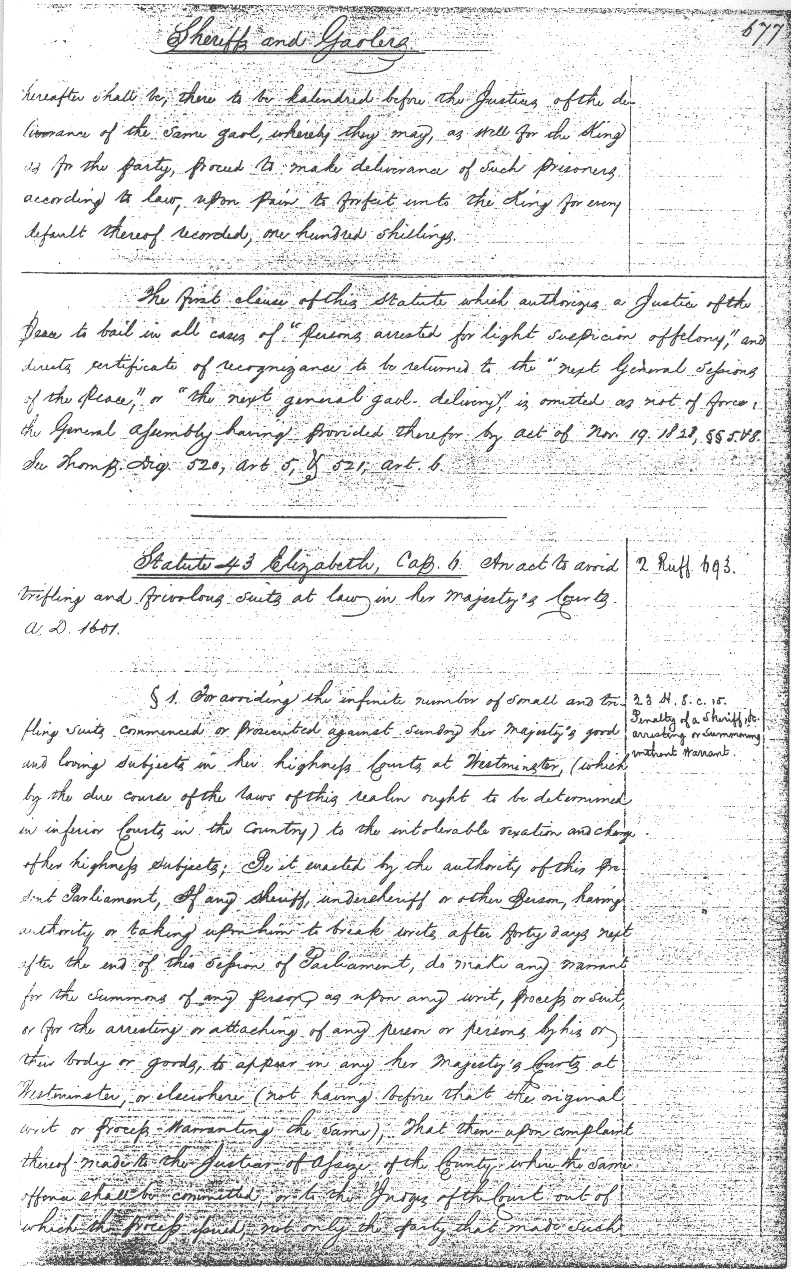 Sheriffs and Gaolers.
677
hereafter shall be, there to be kalendred before the Justices of the de-
liverance of the same gaol, whereby they may, as well for the King
as for the party, proceed to make deliverance of such prisoners
according to law, upon pain to forfeit unto the King for every
default thereof recorded, one hundred shillings.
The first clause of this statute which authorizes a Justice of the
Peace to bail in all cases of "persons arrested for light suspicion of felony," and
directs certificate of recognizance to be returned to the "next General Sessions
of the Peace," or "the next general gaol-delivery," is omitted as not of force;
the General Assembly having provided therefor by act of Nov. 19. 1828, §§ 5.&8.
See Thomp. Dig. 520, art 5, & 521, art. 6.
Statute 43 Elizabeth, Cap. 6. An act to avoid
trifling and frivolous suits at law in her Majesty's Courts.
A. D. 1601.
2 Ruff 693.
§ 1. For avoiding the infinite number of small and tri-
fling suits commenced or prosecuted against sundry her Majesty's good
and loving subjects in her highness Courts at Westminster, (which
by the due course of the laws of this realm ought to be determined
in inferior Courts in the Country) to the intolerable vexation and charge
of her highness subjects; Be it enacted by the authority of this pre-
sent Parliament, If any sheriff, undersheriff or other Person, having
authority or taking upon him to break writs after forty days next
after the end of this session of Parliament, do make any warrant
for the summons of any person as upon any writ, process or suit,
or for the arresting or attaching of any person or persons by his or
their body or goods, to appear in any her Majesty's Courts at
Westminster, or elsewhere (not having before that the original
writ or process warranting the same), That then upon complaint
thereof made to the Justices of Assize of the County where the same
offence shall be committed, or to the Judges of the Court out of
which the process issued, not only the party that made such
23 H. 8. c. 15.
Penalty of a Sheriff, &c.
arresting or summoning
without Warrant.